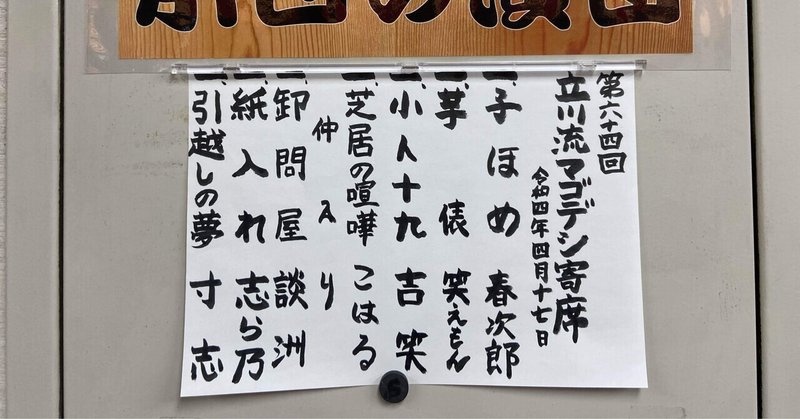 第六十四回
立川流マゴデシ寄席
令和四年四月十七日
一、子ほめ 春次郎
一、芋俵 笑えもん
一、小人十九 吉笑
一、芝居の喧嘩 こはる
仲入り
一、卸問屋 談洲
一、紙入れ 志ら乃
一、引越しの夢 寸志